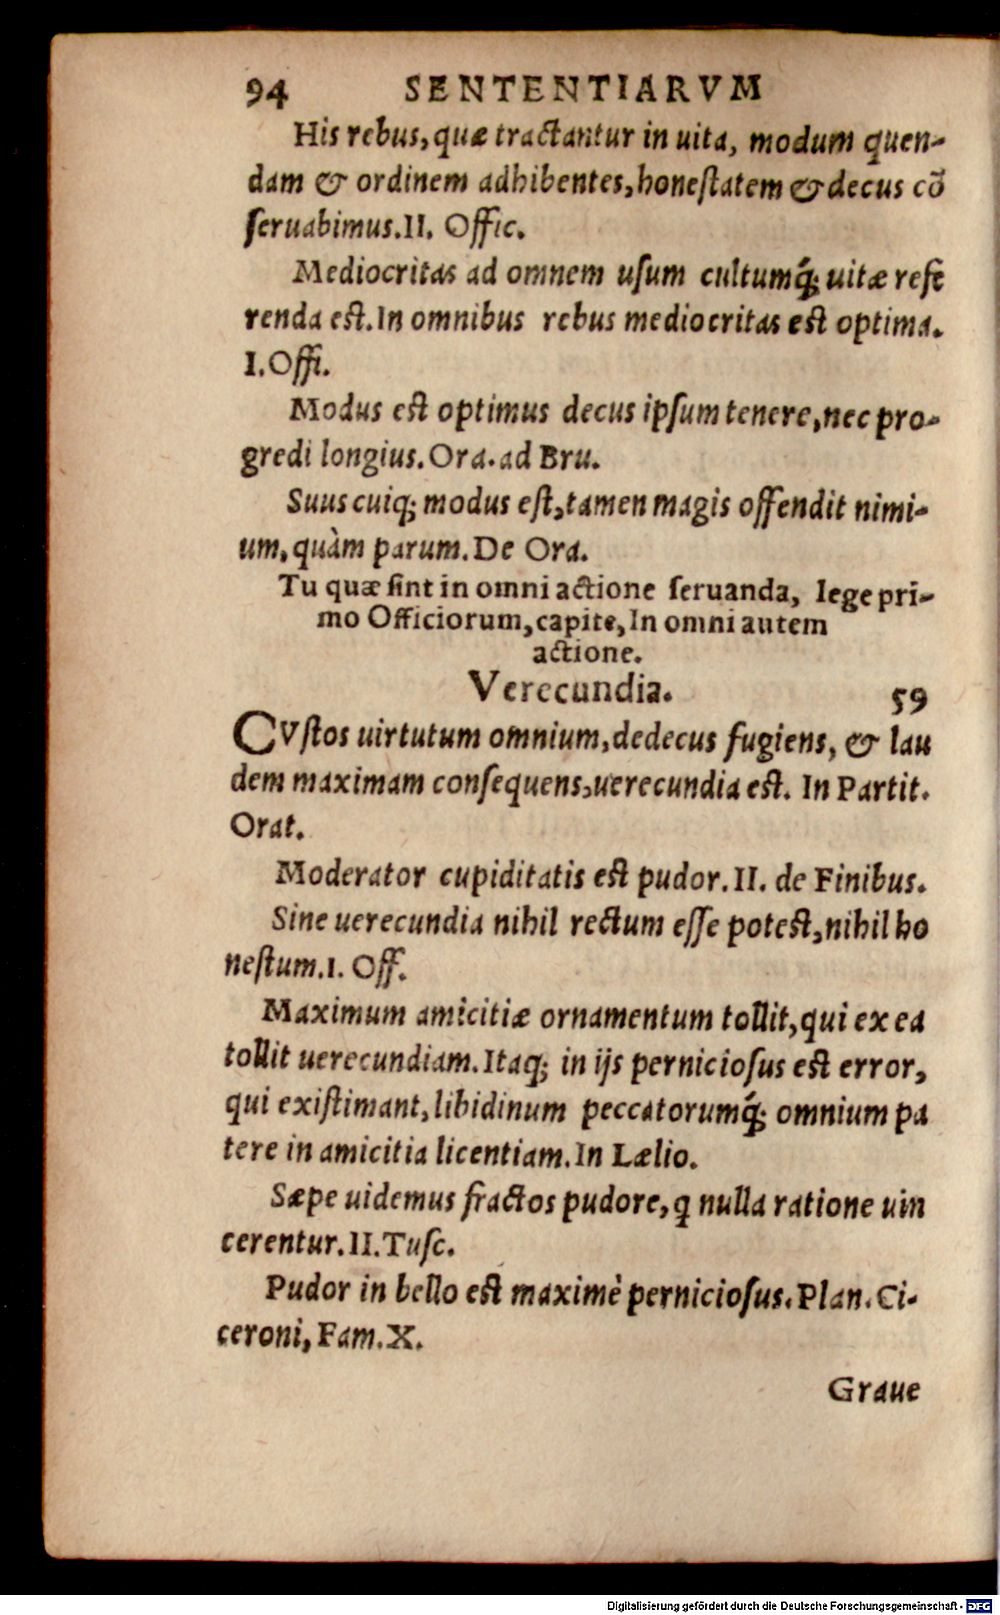 94 SENTENTIARVM
His rebus, quæ tractantur in uita, modum quen-
dam & ordinem adhibentes, honeſtatem & decus cõ
ſeruabimus. II. Offic.
Mediocritas ad omnem uſum cultumq́; uitæ refe
renda eſt. In omnibus rebus mediocritas eſt optima.
I. Offi.
Modus eſt optimus decus ipſum tenere, nec pro-
gredi longius. Ora. ad Bru.
Suus cuiq; modus eſt, tamen magis offendit nimi-
um, quàm parum. De Ora.
Tu quæ ſint in omni actione ſeruanda, lege pri-
mo Officiorum, capite, In omni autem
actione.
Verecundia. 59
CVſtos uirtutum omnium, dedecus fugiens, & lau
dem maximam conſequens, uerecundia eſt. In Partit.
Orat.
Moderator cupiditatis eſt pudor. II. de Finibus.
Sine uerecundia nihil rectum eſſe poteſt, nihil ho
neſtum. I. Off.
Maximum amicitiæ ornamentum tollit, qui ex ea
tollit uerecundiam. Itaq; in ijs pernicioſus eſt error,
qui exiſtimant, libidinum peccatorumq́; omnium pa
tere in amicitia licentiam. In Lælio.
Sæpe uidemus fractos pudore, ꝗ nulla ratione uin
cerentur. II. Tuſc.
Pudor in bello eſt maximè pernicioſus. Plan. Ci-
ceroni, Fam. X.
Graue
Digitalisierung gefördert durch die Deutsche Forschungsgemeinschaft - DFG